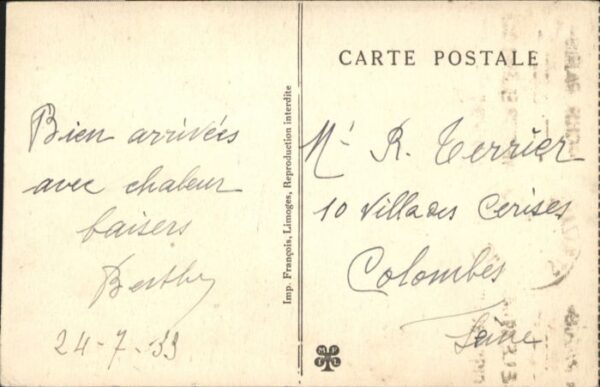 CARTE POSTALE
Bien arrivées
avec chaleur
baisers
Berthe
24-7-33
Imp. François, Limoges, Reproduction interdite
Mr R. Terrier
10 Villa des Cerises
Colombes
Seine